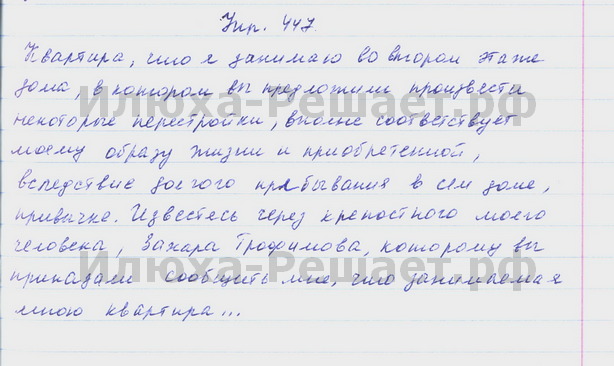 Упр. 447.
Квартира, что я занимаю во втором этаже
дома, в котором вы предложили произвести
некоторые перестройки, вполне соответствует
моему образу жизни и приобретенной,
вследствие долгого пребывания в сем доме,
привычке. Известясь через крепостного моего
человека, Захара Трофимова, которому вы
приказали сообщить мне, что занимаемая
мною квартира...
Илюха-Решает.рф
Илюха-Решает.рф